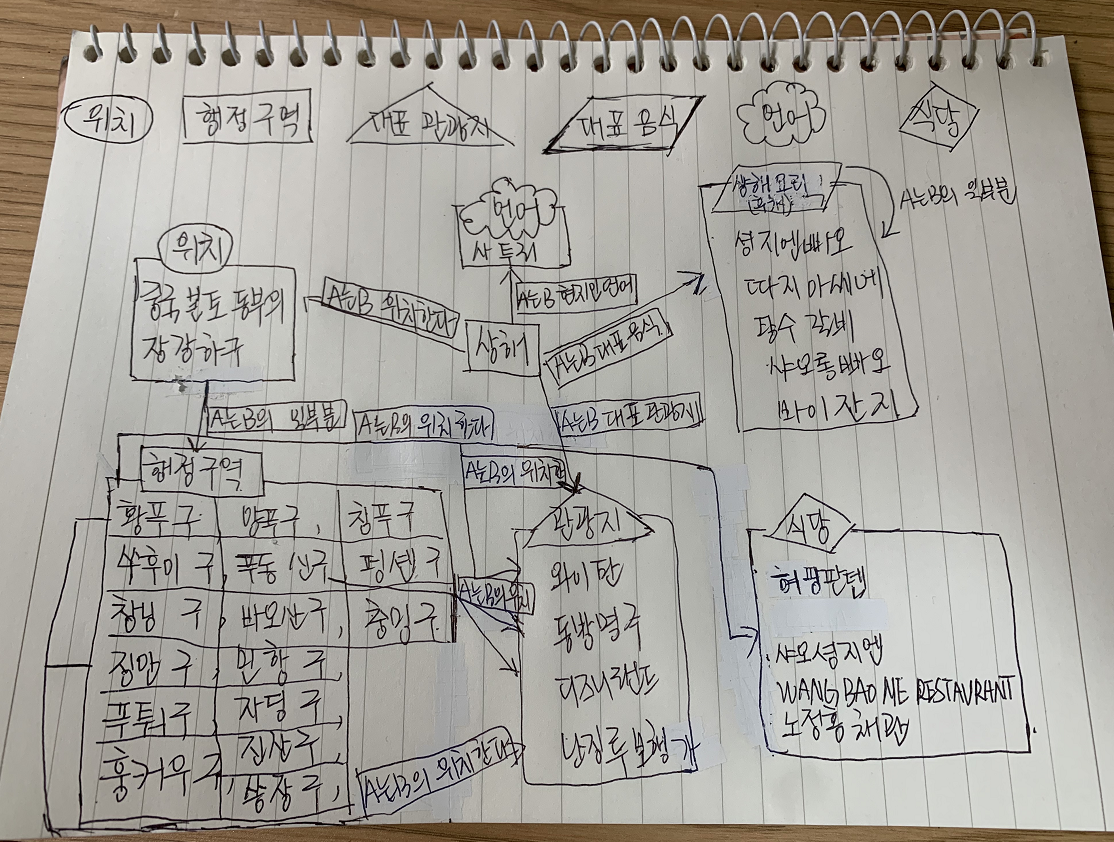 위치
행정 구역
대표 관광지
대표 음식
언어
식당
언어
사투리
상해 요리
A는B의 일부분
성지엔빠오
따지아씨에
탕수 갈비
샤오롱빠오
바이잔지
위치
중국 본토 동부의
장강하구
A는B 위치한다
A는B 현지인언어
상해
A는B 대표음식
A는B의 일부분
A는B의 위치한다
A는B 대표 관광지
A는B의 위치한
행정 구역
황푸구 양푸구, 칭푸구
쉬후이 구, 푸동신구 펑셴구
창닝 구, 바오산구, 충밍구
징안 구, 민항 구,
푸퉈구, 자딩 구,
훙커우 구, 진산구,
송장구,
A는B의위치
A는B의 위치한다
관광지
와이탄
동방명주
디즈니랜드
난징루보행가
식당
허핑판뎬
샤오셩지엔
WANG BAO HE RESTAURANT
노정흥채관